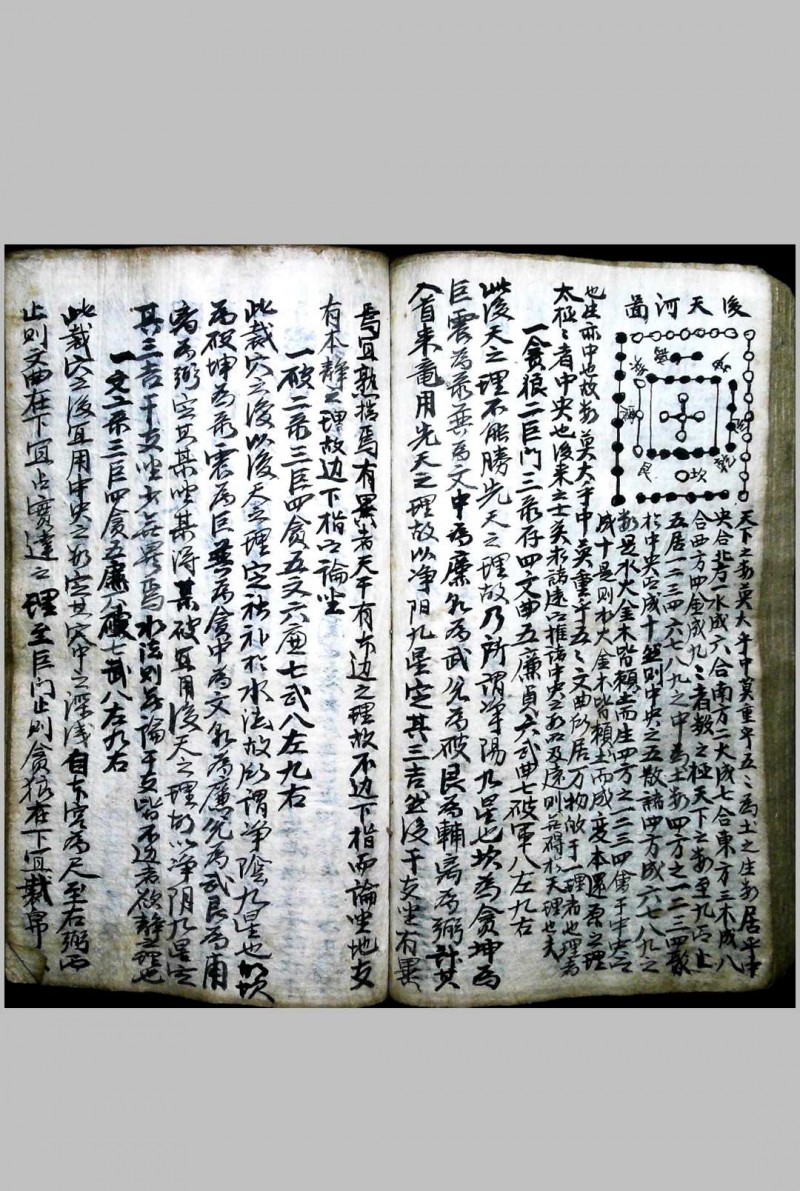 後天河啚
坎
艮
天下之數莫大乎中莫重乎五〻爲土之生數居乎中
央合北方一水成六合南方二火成七合東方三木成八
合西方四金成九〻者數之極天下之數至九而止
五居一二三四六七八九之中爲土數四方之一二三四聚
於中央而成十然則中央之五散諸四方成六七八九之
數是水火金木皆賴土而生四方之一二三四會于中央而
成十是則水火金木皆賴土而成度本還
也生亦中也故數莫大乎中莫重乎五〻文曲
居万物
于一理者也理
太極〻者中央也後來之士
一貪狼二巨門三彔存四文曲五廉貞六武曲七破軍八左九右
此後天之理不能勝先天之理故乃所謂淨陽九星也坎爲貪坤爲
巨震爲彔巽爲文中爲廉乾爲武兌爲破艮爲輔离爲弼計其
入首來龍用先天之理故以淨阳九星定其三吉然後干支坐有異
焉宜熟揣焉有異者天干有布边之理故不边下指而論坐地支
有本靜之理故边下指而論坐
一破二彔三巨四貪五文六廉七武八左九右
此裁穴之後以後天之理定
於水法故所謂淨陰九星也故坎
爲破坤爲彔震爲巨巽爲貪中爲文乾爲廉兌爲武艮爲甫
离爲弼定其某坐某得某破宜用後天之理故以淨阴九星定
其三吉干支坐少無異焉水法則無論干支皆不边者欲靜之理也
一文二彔三巨四貪五廉六破七武八左九右
此裁穴之後宜用中央之數定其穴中之深浅自本宮爲尺至右弼而
止則文曲在下宜
之理至巨門止則貪狼在下宜